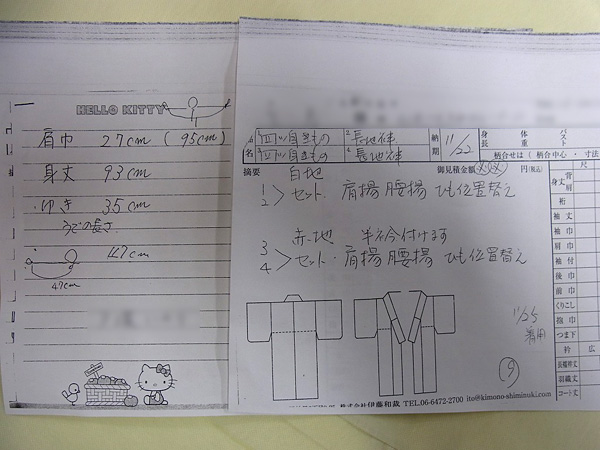 HELLO KITTY
肩巾 27cm (95cm)
身丈 93cm
ゆき 35cm
そでの長さ
47cm
品名
1 四ツ身きもの 2 長地袢
3 四ツ身きもの 4 長地袢
納期 11/22
身長 体重 バスト
柄合せは(柄合中心・寸法
摘要
白地
御見積金額
円(税込)
1
2 > セット 肩揚 腰揚 ひも位置替え
赤地 半衿付けます
3
4 > セット 肩揚 腰揚 ひも位置替え
11/25
着用
(9)
尺
身丈 背 肩
裄
袖丈
袖巾
肩巾
袖付
後巾
前巾
くりこし
抱巾
つま下
衿 広
長襦袢丈
羽織丈
コート丈
株式会社伊藤和裁 TEL.06-6472-2700 ito@kimono-shiminuki.com